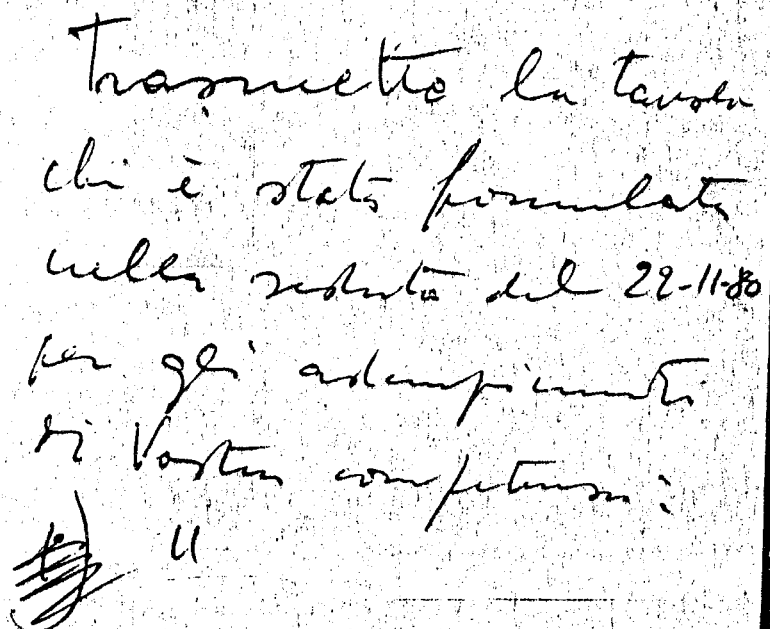 Trasmetto la tavola
che è stata formulata
nella seduta del 22-11-80
per gli adempimenti
di Vostra competenza: